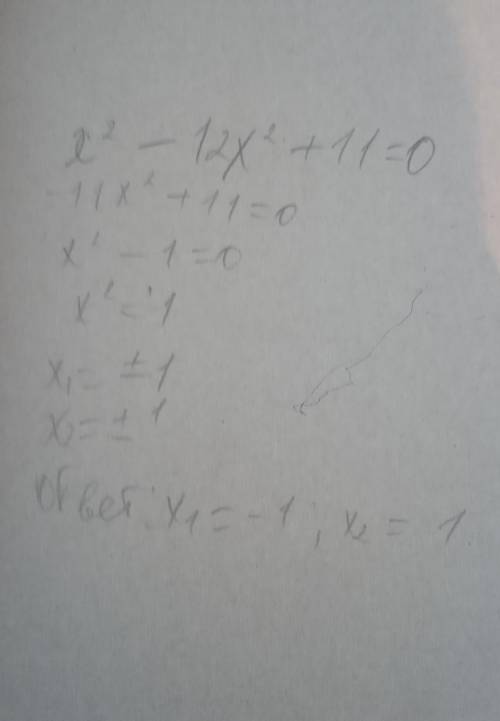 x² - 12x² + 11 = 0
-11x² + 11 = 0
x² - 1 = 0
x² = 1
x₁ = ±1
x₂ = ±1
Ответ: x₁ = -1; x₂ = 1